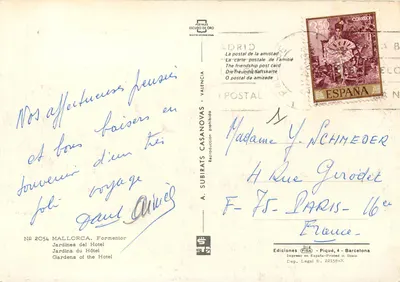 La postal de la amistad
La carte postale de l'amitié
The friendship post card
Die Freundschaftskarte
O postal da amizade
CORREOS
ESPAÑA
POSTAL
Nos affectueuses pensées
et bons baisers en
souvenir d'un très
joli voyage
A. SUBIRATS CASANOVAS - VALENCIA
Reproducción prohibida
Madame Y. SCHMEDER
4 Rue Girodet
F-75-PARIS-16e
France
Nº 2054 MALLORCA. Formentor
Jardines del Hotel
Jardins du Hôtel
Gardens of the Hotel
Ediciones - Piqué, 4 - Barcelona